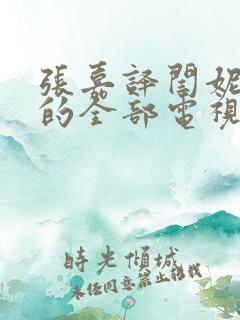 張嘉譯閆妮
的全部電視
時光傾城
未經同意禁止轉載